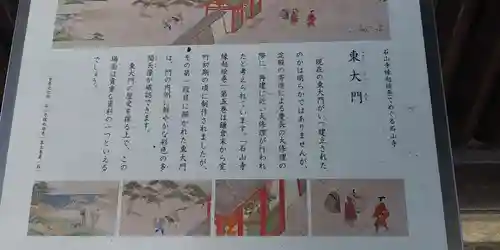 石山寺縁起絵巻でめぐる石山寺
東大門
現在の東大門がいつ建立された
のかは明らかではありませんが、
淀殿の寄進による慶長の大修理の
際に、再建に近い大修理が行われ
たと考えられています。「石山寺
縁起絵巻」第五巻は鎌倉末から室
町初期の頃に制作されましたが、
その第一段目に描かれた東大門
は、門の内側に鮮やかな彩色の多
聞天像が確認できます。
東大門の歴史を探る上で、この
場面は貴重な資料の一つといえる
でしょう。